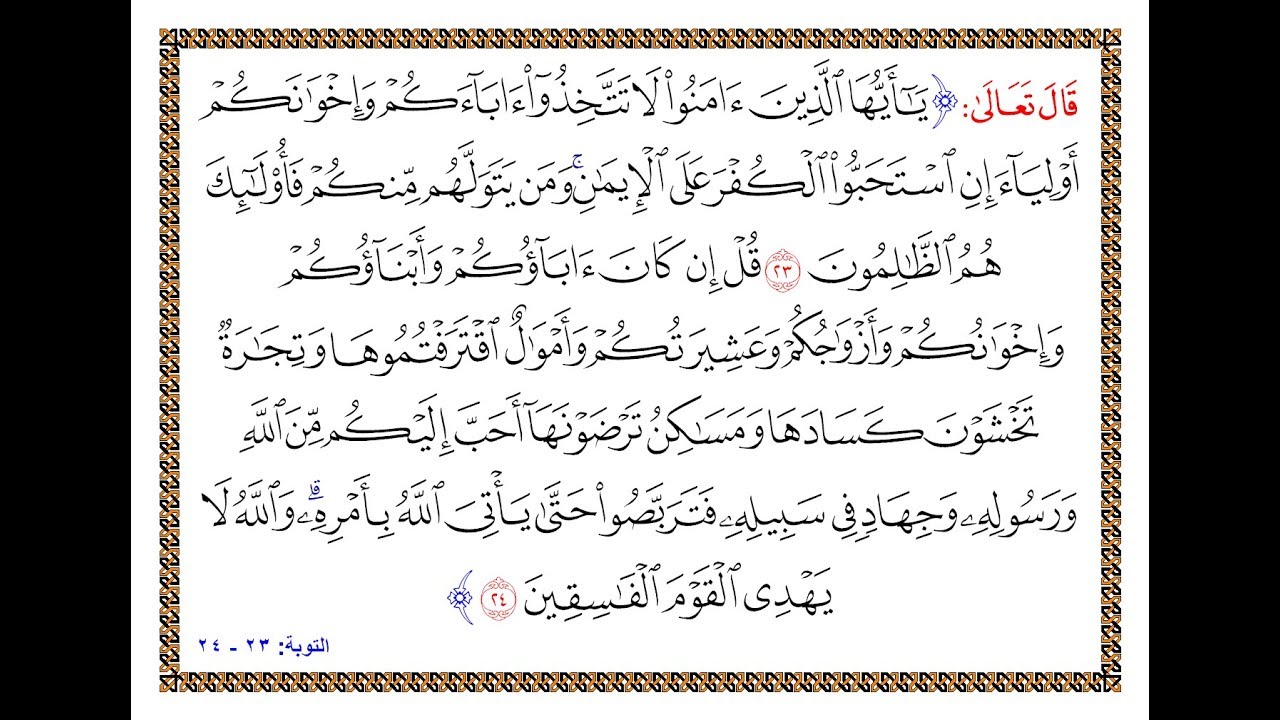 قَالَ تَعَالَىٰ: ﴿يَـٰٓأَيُّهَا ٱلَّذِينَ ءَامَنُوا۟ لَا تَتَّخِذُوٓا۟ ءَابَآءَكُمْ وَإِخْوَٰنَكُمْ
أَوْلِيَآءَ إِنِ ٱسْتَحَبُّوا۟ ٱلْكُفْرَ عَلَى ٱلْإِيمَـٰنِ ۚ وَمَن يَتَوَلَّهُم مِّنكُمْ فَأُو۟لَـٰٓئِكَ
هُمُ ٱلظَّـٰلِمُونَ ٢٣ قُلْ إِن كَانَ ءَابَآؤُكُمْ وَأَبْنَآؤُكُمْ
وَإِخْوَٰنُكُمْ وَأَزْوَٰجُكُمْ وَعَشِيرَتُكُمْ وَأَمْوَٰلٌ ٱقْتَرَفْتُمُوهَا وَتِجَـٰرَةٌ
تَخْشَوْنَ كَسَادَهَا وَمَسَـٰكِنُ تَرْضَوْنَهَآ أَحَبَّ إِلَيْكُم مِّنَ ٱللَّهِ
وَرَسُولِهِۦ وَجِهَادٍ فِى سَبِيلِهِۦ فَتَرَبَّصُوا۟ حَتَّىٰ يَأْتِىَ ٱللَّهُ بِأَمْرِهِۦ ۗ وَٱللَّهُ لَا
يَهْدِى ٱلْقَوْمَ ٱلْفَـٰسِقِينَ ٢٤﴾
التوبة: ٢٣ - ٢٤